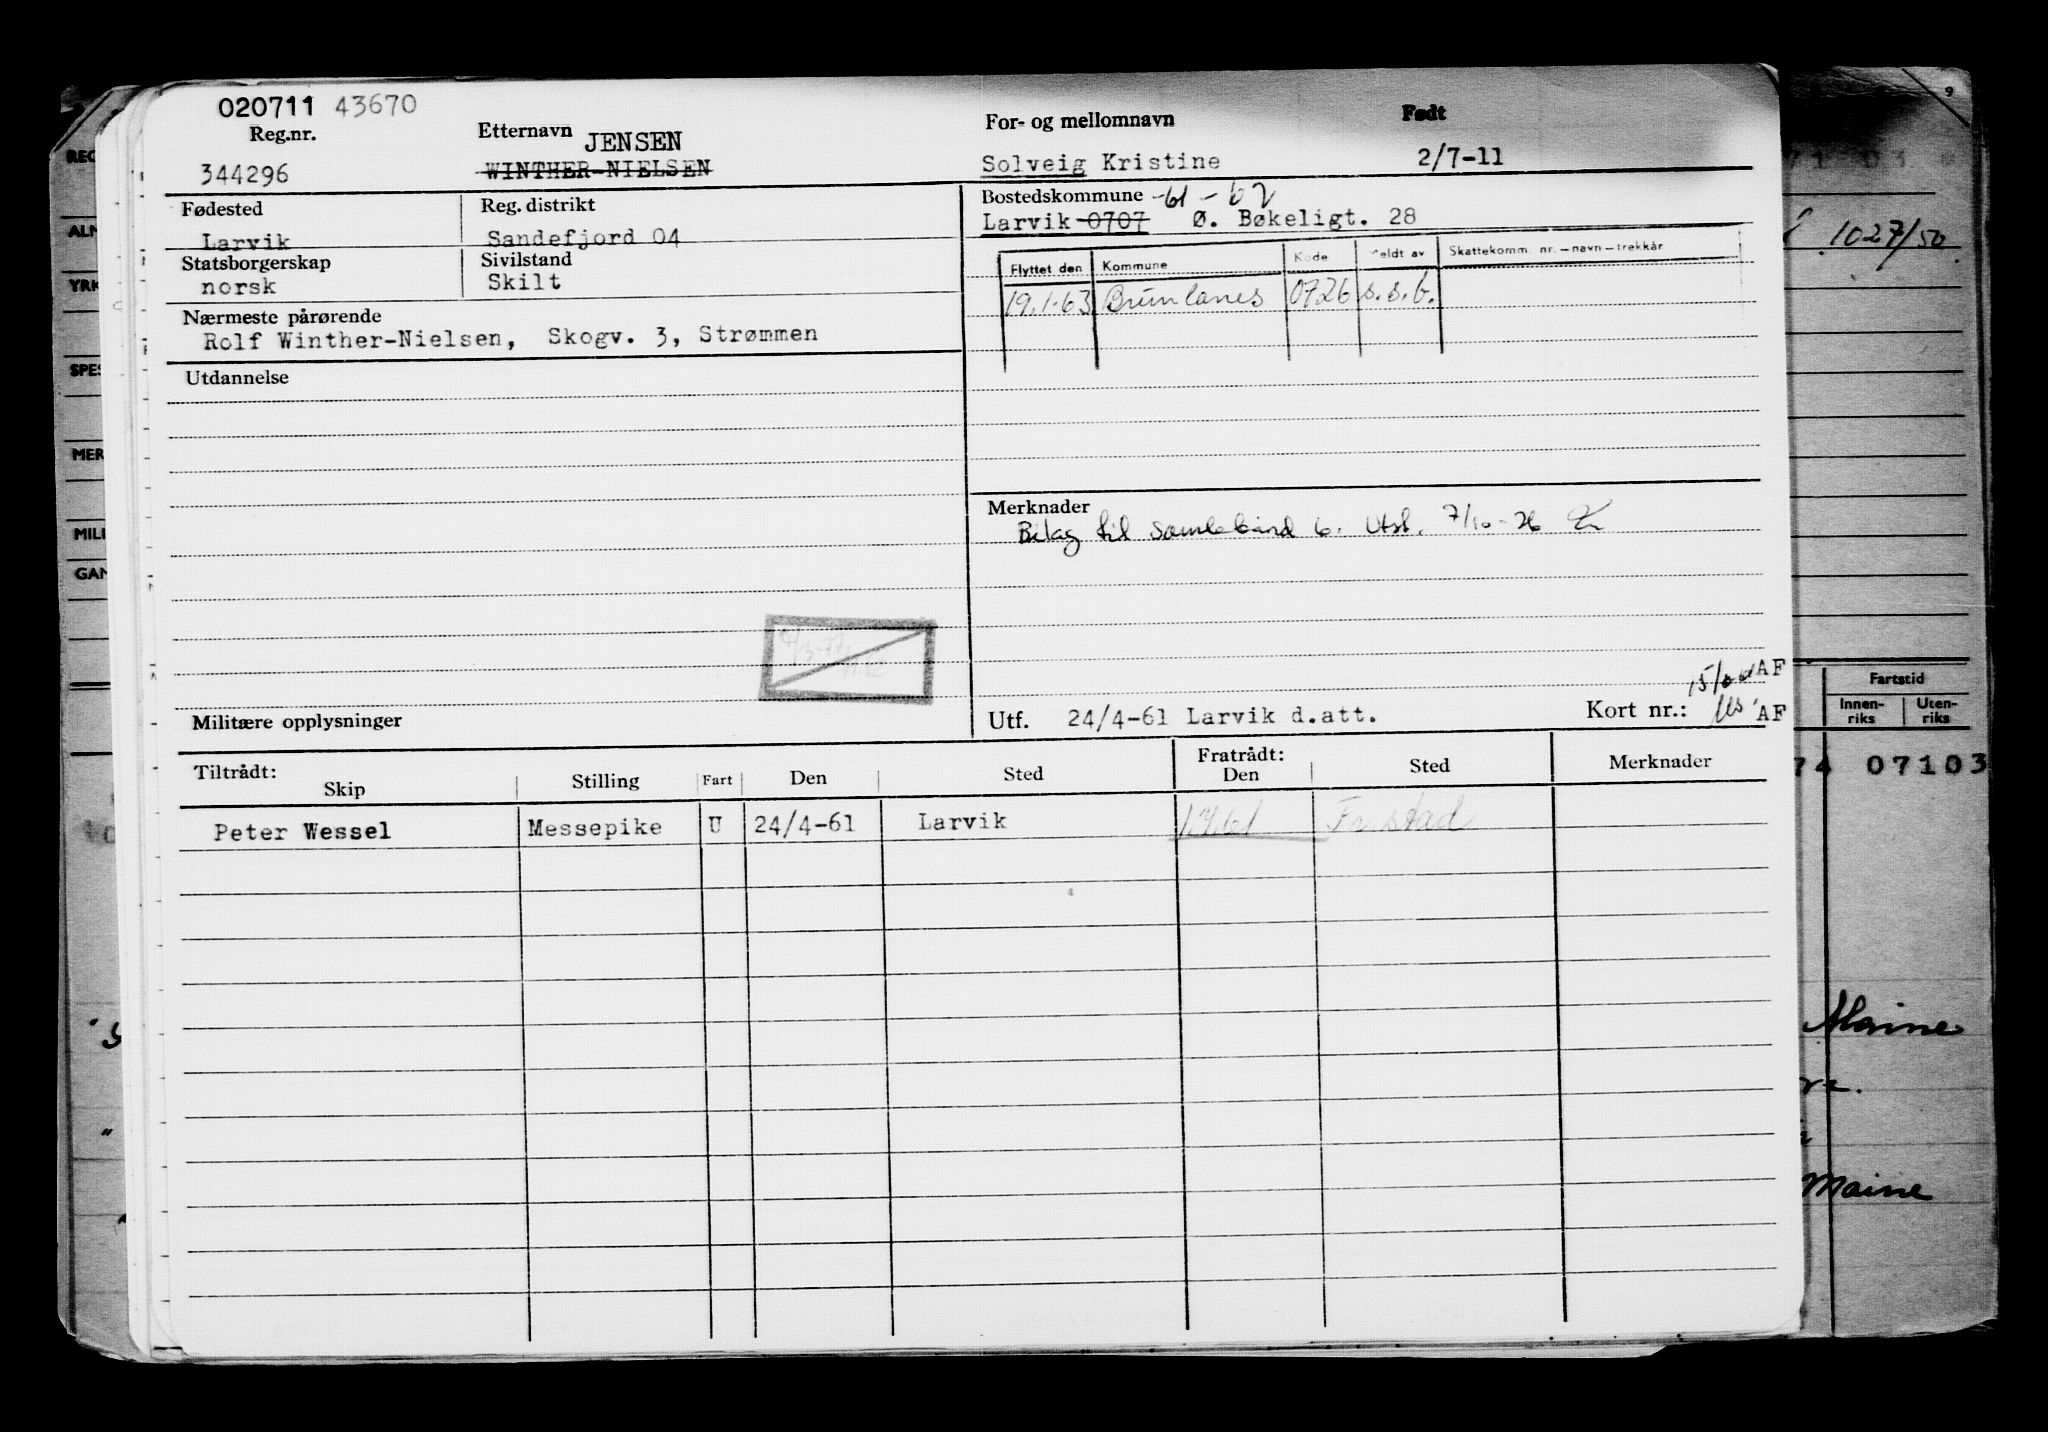 020711 43670
Reg.nr. Etternavn JENSEN For- og mellomnavn Født
344296 WINTHER-NIELSEN Solveig Kristine 2/7-11
Fødested Reg. distrikt Bostedskommune -61-62
Larvik Sandefjord 04 Larvik 0707 Ø. Bøkeligt. 28
Statsborgerskap Sivilstand
norsk Skilt
Flyttet den Kommune Kode Meldt av Skattekomm. nr. — navn — trekkår
19.1.63 Brunlanes 0726 s.s.b.
Nærmeste pårørende
Rolf Winther-Nielsen, Skogv. 3, Strømmen
Utdannelse
Merknader
Bilag til samlebånd 6. Utst. 7/10-76
Militære opplysninger
AF
Utf. 24/4-61 Larvik d.att. Kort nr.: AF
Tiltrådt: Fratrådt:
Skip Stilling Fart Den Sted Den Sted Merknader
Peter Wessel Messepike U 24/4-61 Larvik
REG
ALM
YRK
SPES
MER
MILI
GAN
9
71 03
1027/50
Fartstid
Innen- Uten-
riks riks
74 07103
Maine
Maine